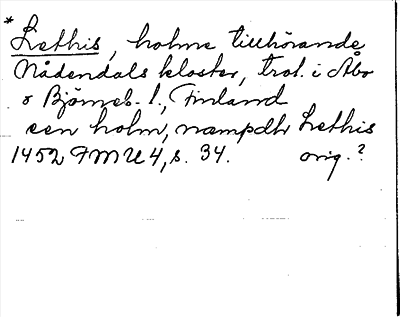 * Lethis, holme tillhörande
Nådendals kloster, trol. i Åbo
o Björneb. l., Finland
een holm, nampdh Lethis
1452 FMU 4, s. 34. orig.?